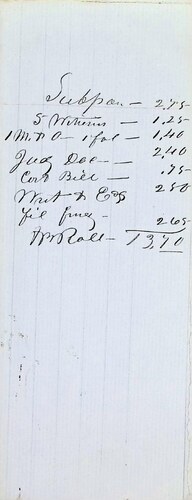 Subpoa — 2.75
5 Witness — 1.25
1 M. & O — 1 fol — 1.40
Judg Doc — 2.40
Cost Bill — .75
Writ & 250
fil 265
Roll — 13.70